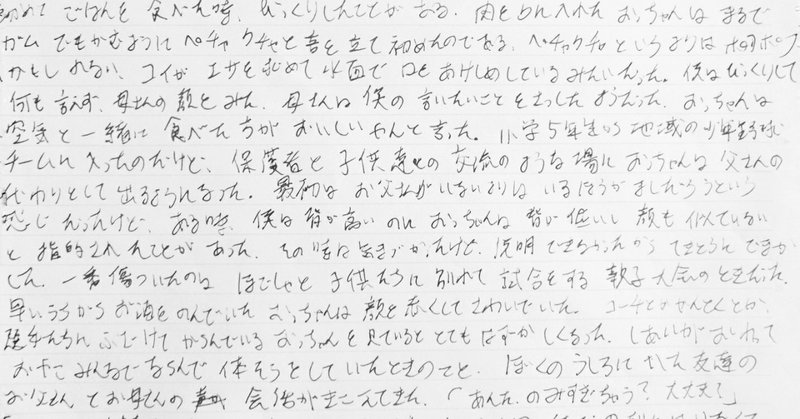 初めて ごはんを 食べた時、びっくりしたことが ある。肉を口に入れた おっちゃんは まるで
ガム でもかむように ペチャ クチャと 音を 立て 初めたのである。ペチャクチャ というよりは
かもしれない。コイが エサを 求めて 水面で 口を あけしめしているみたいだった。僕はびっくりして
何も 言えず、母さんの 顔を みた。母さんは 僕の 言いたいことを さっした ようだった。おっちゃんは
空気と 一緒に 食べた 方が おいしいやんと 言った。小学5年生から 地域の 少年野球
チームに 入ったのだけど、保護者と 子供達との 交流の ような 場に おっちゃんは 父さんの
代わりとして 出るようになった。最初は お父さんがいないよりは いるほうが ましだろうという
感じ だったけど、ある時、僕は 背が 高い のに おっちゃんは 背が 低いし 顔も 似ていない
と 指的されたことが あった。その時は 気まづかったけど、説明 できなかったから てきとうに ごまか
した。一番 傷ついたのは ほごしゃと 子供たちに 別れて 試合をする 親子 大会の ときだった。
早いうちから お酒を のんでいた おっちゃんは 顔を 赤くして さわいでいた。コーチとか かんとくとか、
選手たちに ふざけて からんでいる おっちゃんを 見ていると とても はずか しくなった。しあいが おわって
おやこ みんなで ならんで 体そうを していたときのこと。ぼくの うしろに いた 友達の
お父さん と お母さんの 会話が きこえてきた。「あんた のみすぎちゃう？ 大丈夫？」